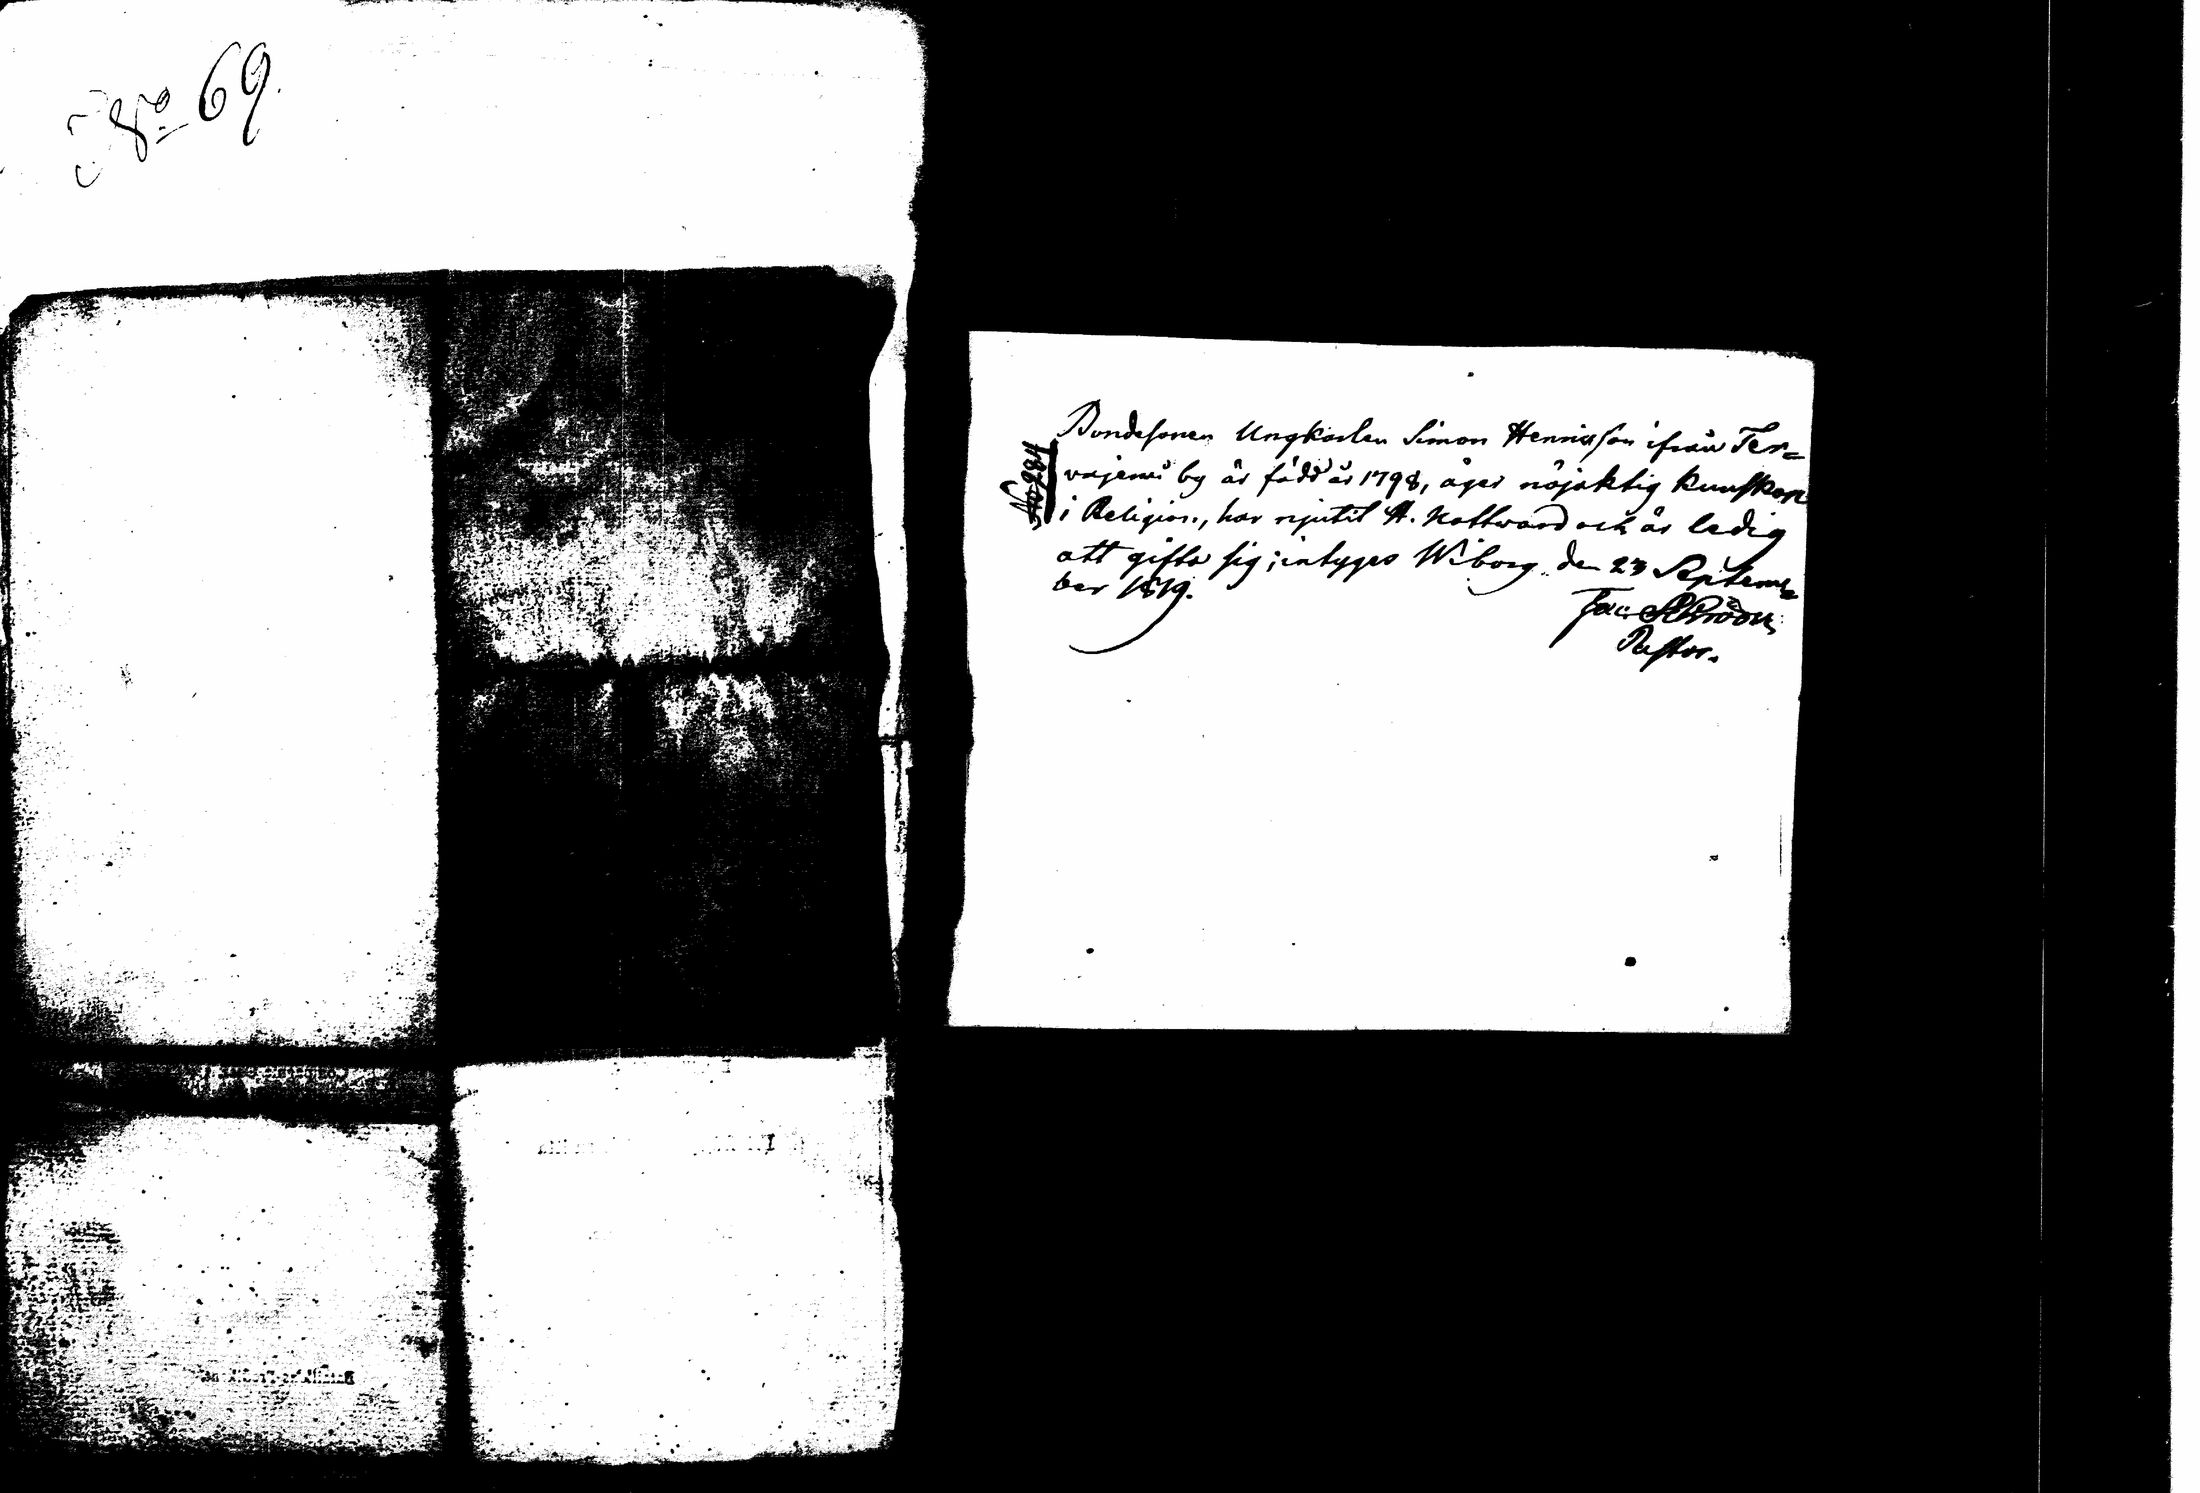 No 69.
No 284
Bondesonen Ungkarlen Simon Henrisson ifrån Ter=
vajemi by är född år 1798, äger nöjaktig kunskap
i Religion, har njutit H. Nattward och är ledig
att gifta sig; intyges Wiborg den 23 Septem=
ber 1819.
Pastor.